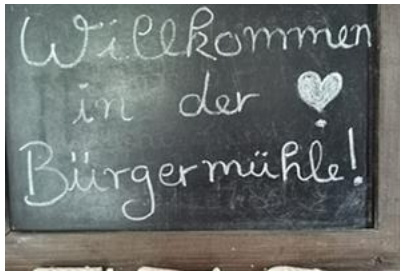 Willkommen
in der
Bürgermühle!